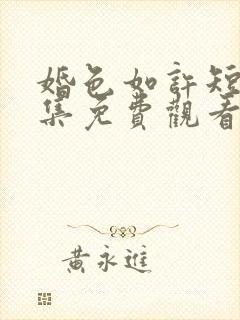 婚色如許短
集免費觀看
黃永進